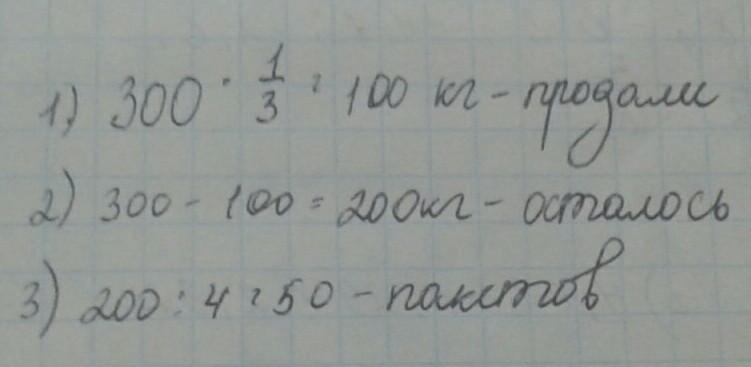 1) 300 · 1/3 = 100 кг - продали
2) 300 - 100 = 200кг - осталось
3) 200 : 4 = 50 - пакетов